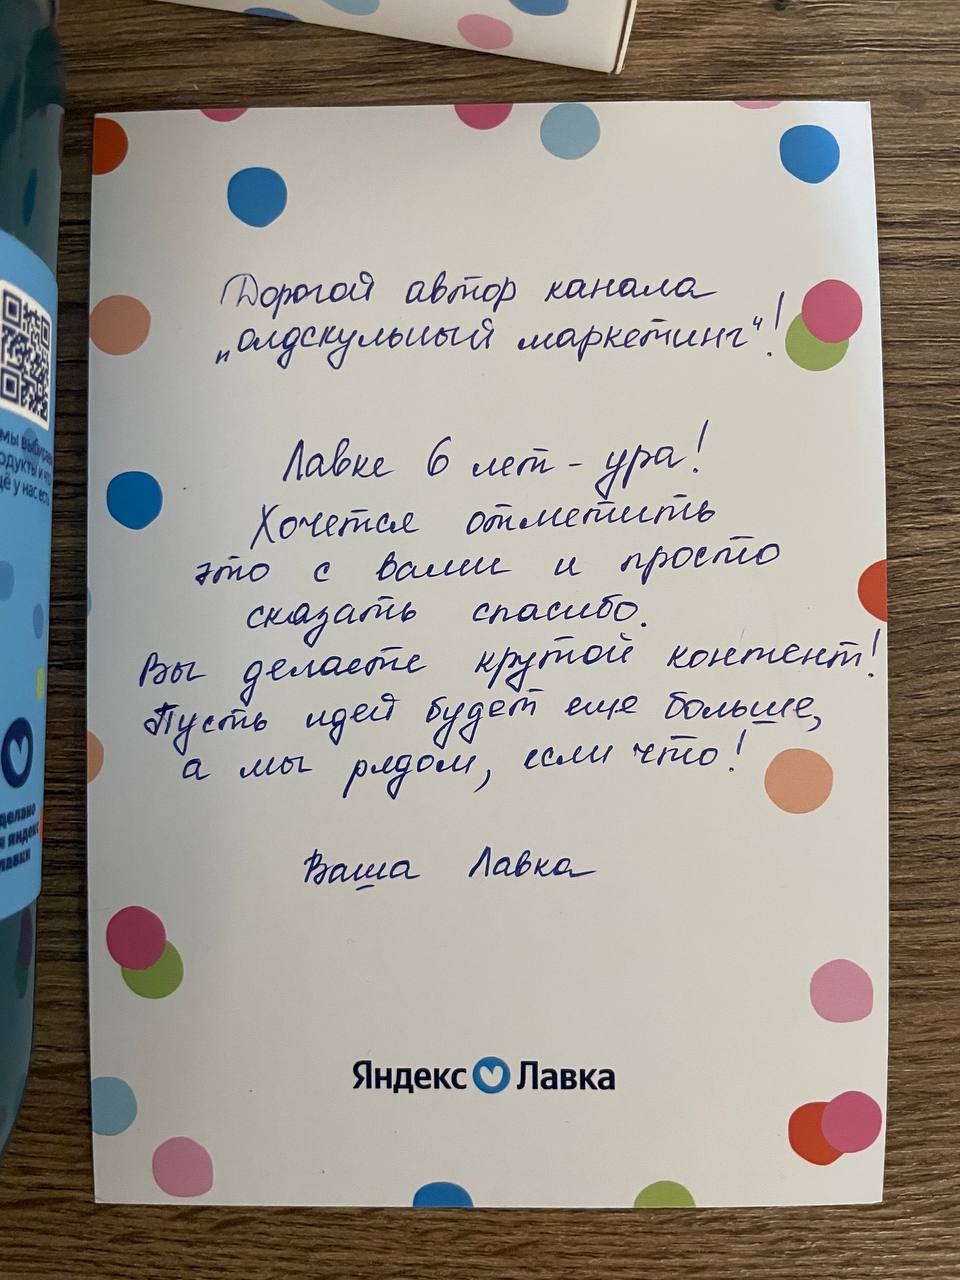 Дорогой автор канала
„олдскульный маркетинг“!
Лавке 6 лет - ура!
Хочется отметить
это с вами и просто
сказать спасибо.
Вы делаете крутой контент!
Пусть идей будет еще больше,
а мы рядом, если что!
Ваша Лавка
Яндекс Лавка
мы выбирае
одукты и что
щё у нас есть
делано
я яндекс
лавки